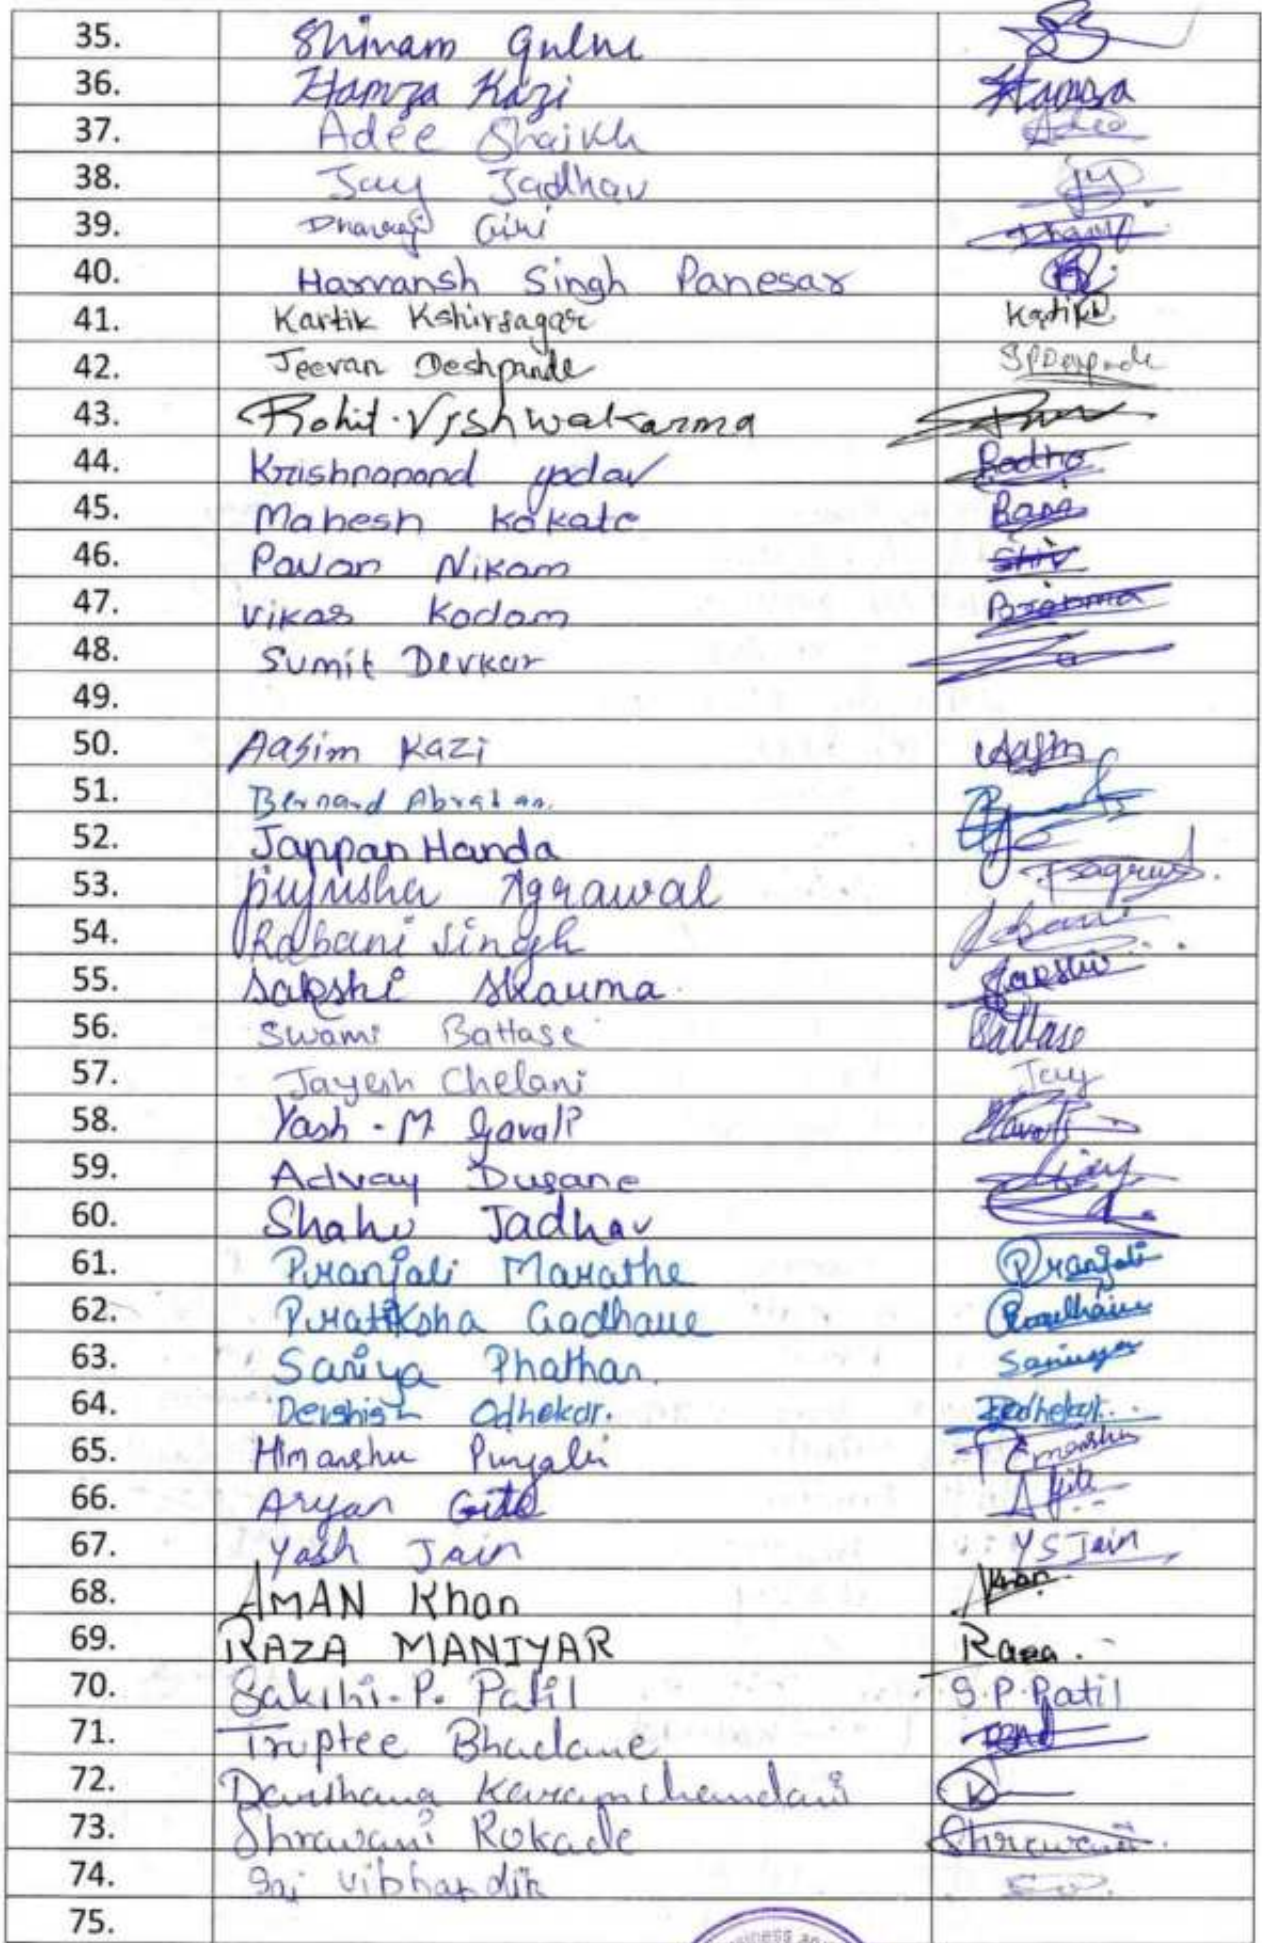 35. Shivam Gulve
36. Hamza Kazi Hamza
37. Adee Shaikh Adee
38. Jay Jadhav Jay
39. Dhanraj Giri
40. Harvansh Singh Panesar
41. Kartik Kshirsagar Kartik
42. Jeevan Deshpande
43. Rohit Vishwakarma
44. Krishnanand yadav Radha
45. Mahesh Kakate Rane
46. Pavan Nikam Shiv
47. Vikas Kadam Brahma
48. Sumit Devkar
49.
50. Aasim Kazi Aasim
51. Bernard Abraham
52. Jappan Handa
53. Piyusha Agrawal
54. Rabani Singh
55. Sakshi Sharma Sakshi
56. Swami Battase Battase
57. Jayesh Chelani Jay
58. Yash - M Gavali
59. Advay Dusane
60. Shahu Jadhav
61. Pranjali Marathe Pranjali
62. Pratiksha Gadhave
63. Saniya Phathan. Saniya
64. Odhekar.
65. Himanshu Punjabi
66. Aryan Gite
67. Yash Jain Y S Jain
68. AMAN Khan Khan
69. RAZA MANIYAR Raza.
70. Sakshi. P. Patil S.P.Patil
71. Truptee Bhadane
72. Darshana Karamchandani
73. Shravani Rokade Shravani
74. Sai Vibhandik
75.